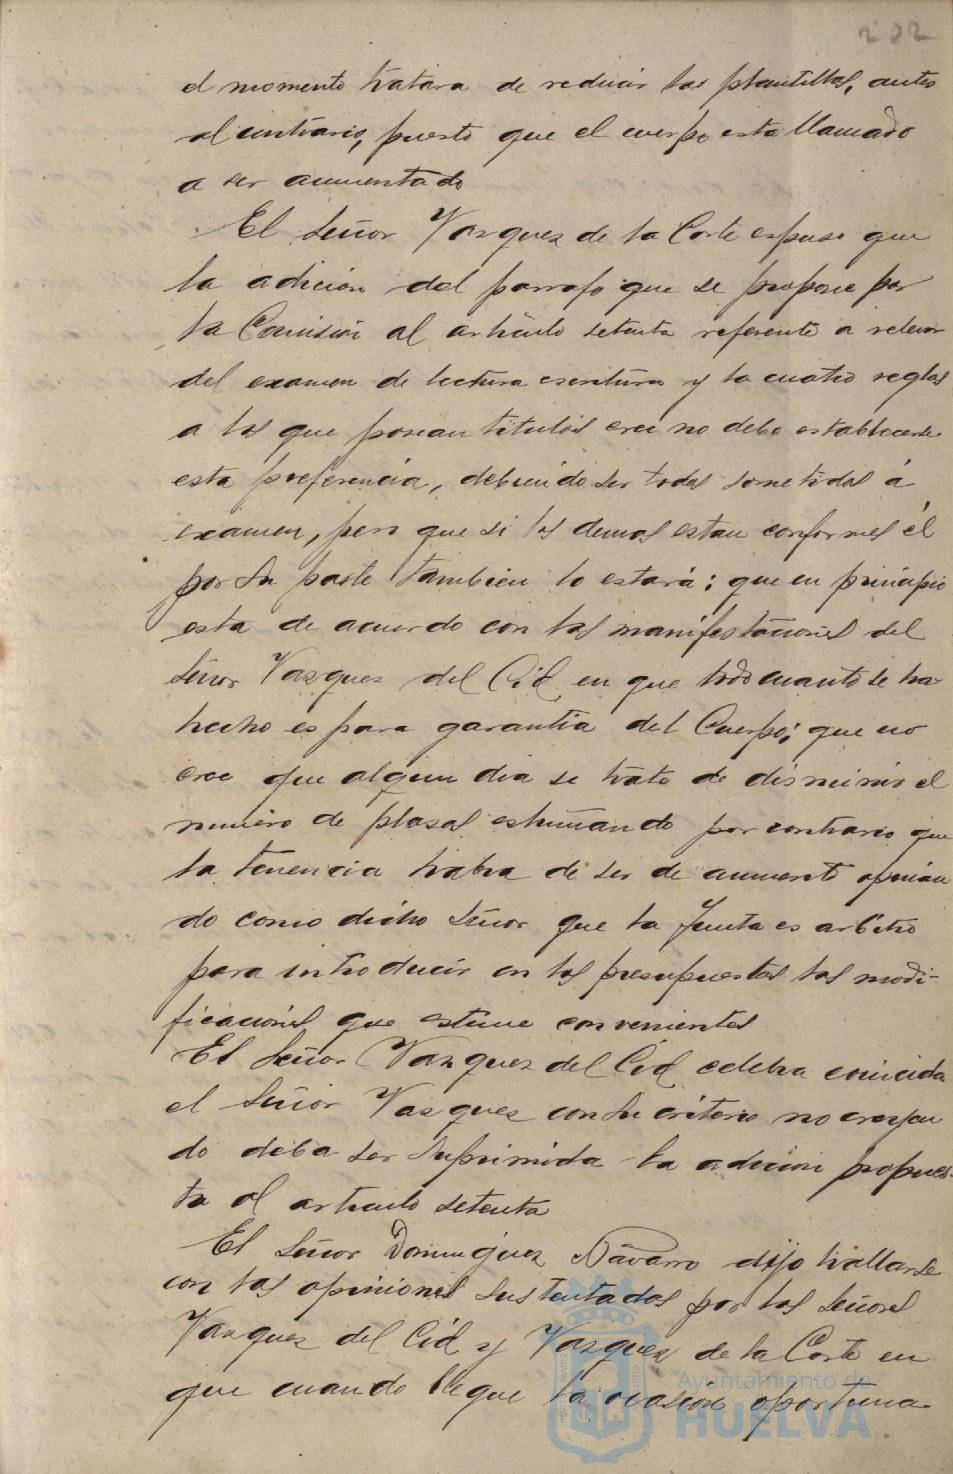 202
el momento tratara de reducir las plantillas, antes
al contrario, puesto que el cuerpo esta llamado
a ser aumentado
El Señor Vazquez de la Corte expuso que
la adición del parrafo que se propone por
la Comisión al articulo setenta referente a relevar
del examen de lectura escritura y la cuatro reglas
a los que posean titulos cree no debe establecerse
esta preferencia, debiendo ser todos sometidos á
examen, pero que si los demas estan conformes él
por su parte tambien lo estará; que en principio
esta de acuerdo con las manifestaciones del
Señor Vazquez del Cid en que todo cuanto se ha
hecho es para garantia del Cuerpo; que no
cree que algun dia se trate de disminuir el
numero de plazas estimando por contrario que
la tenencia habra de ser de aumento opinan
do como dicho Señor que la Junta es arbitro
para introducir en los presupuestos las modi-
ficaciones que estime convenientes
El Señor Vazquez del Cid celebra coincida
el Señor Vazquez con su criterio no creyen
do deba ser suprimida la adicion propues-
ta al articulo setenta
El Señor Dominguez Návarro dijo hallarse
con las opiniones sustentadas por los Señores
Vazquez del Cid y Vazquez de la Corte en
que cuando llegue la ocasion oportuna
Ayuntamiento de
HUELVA